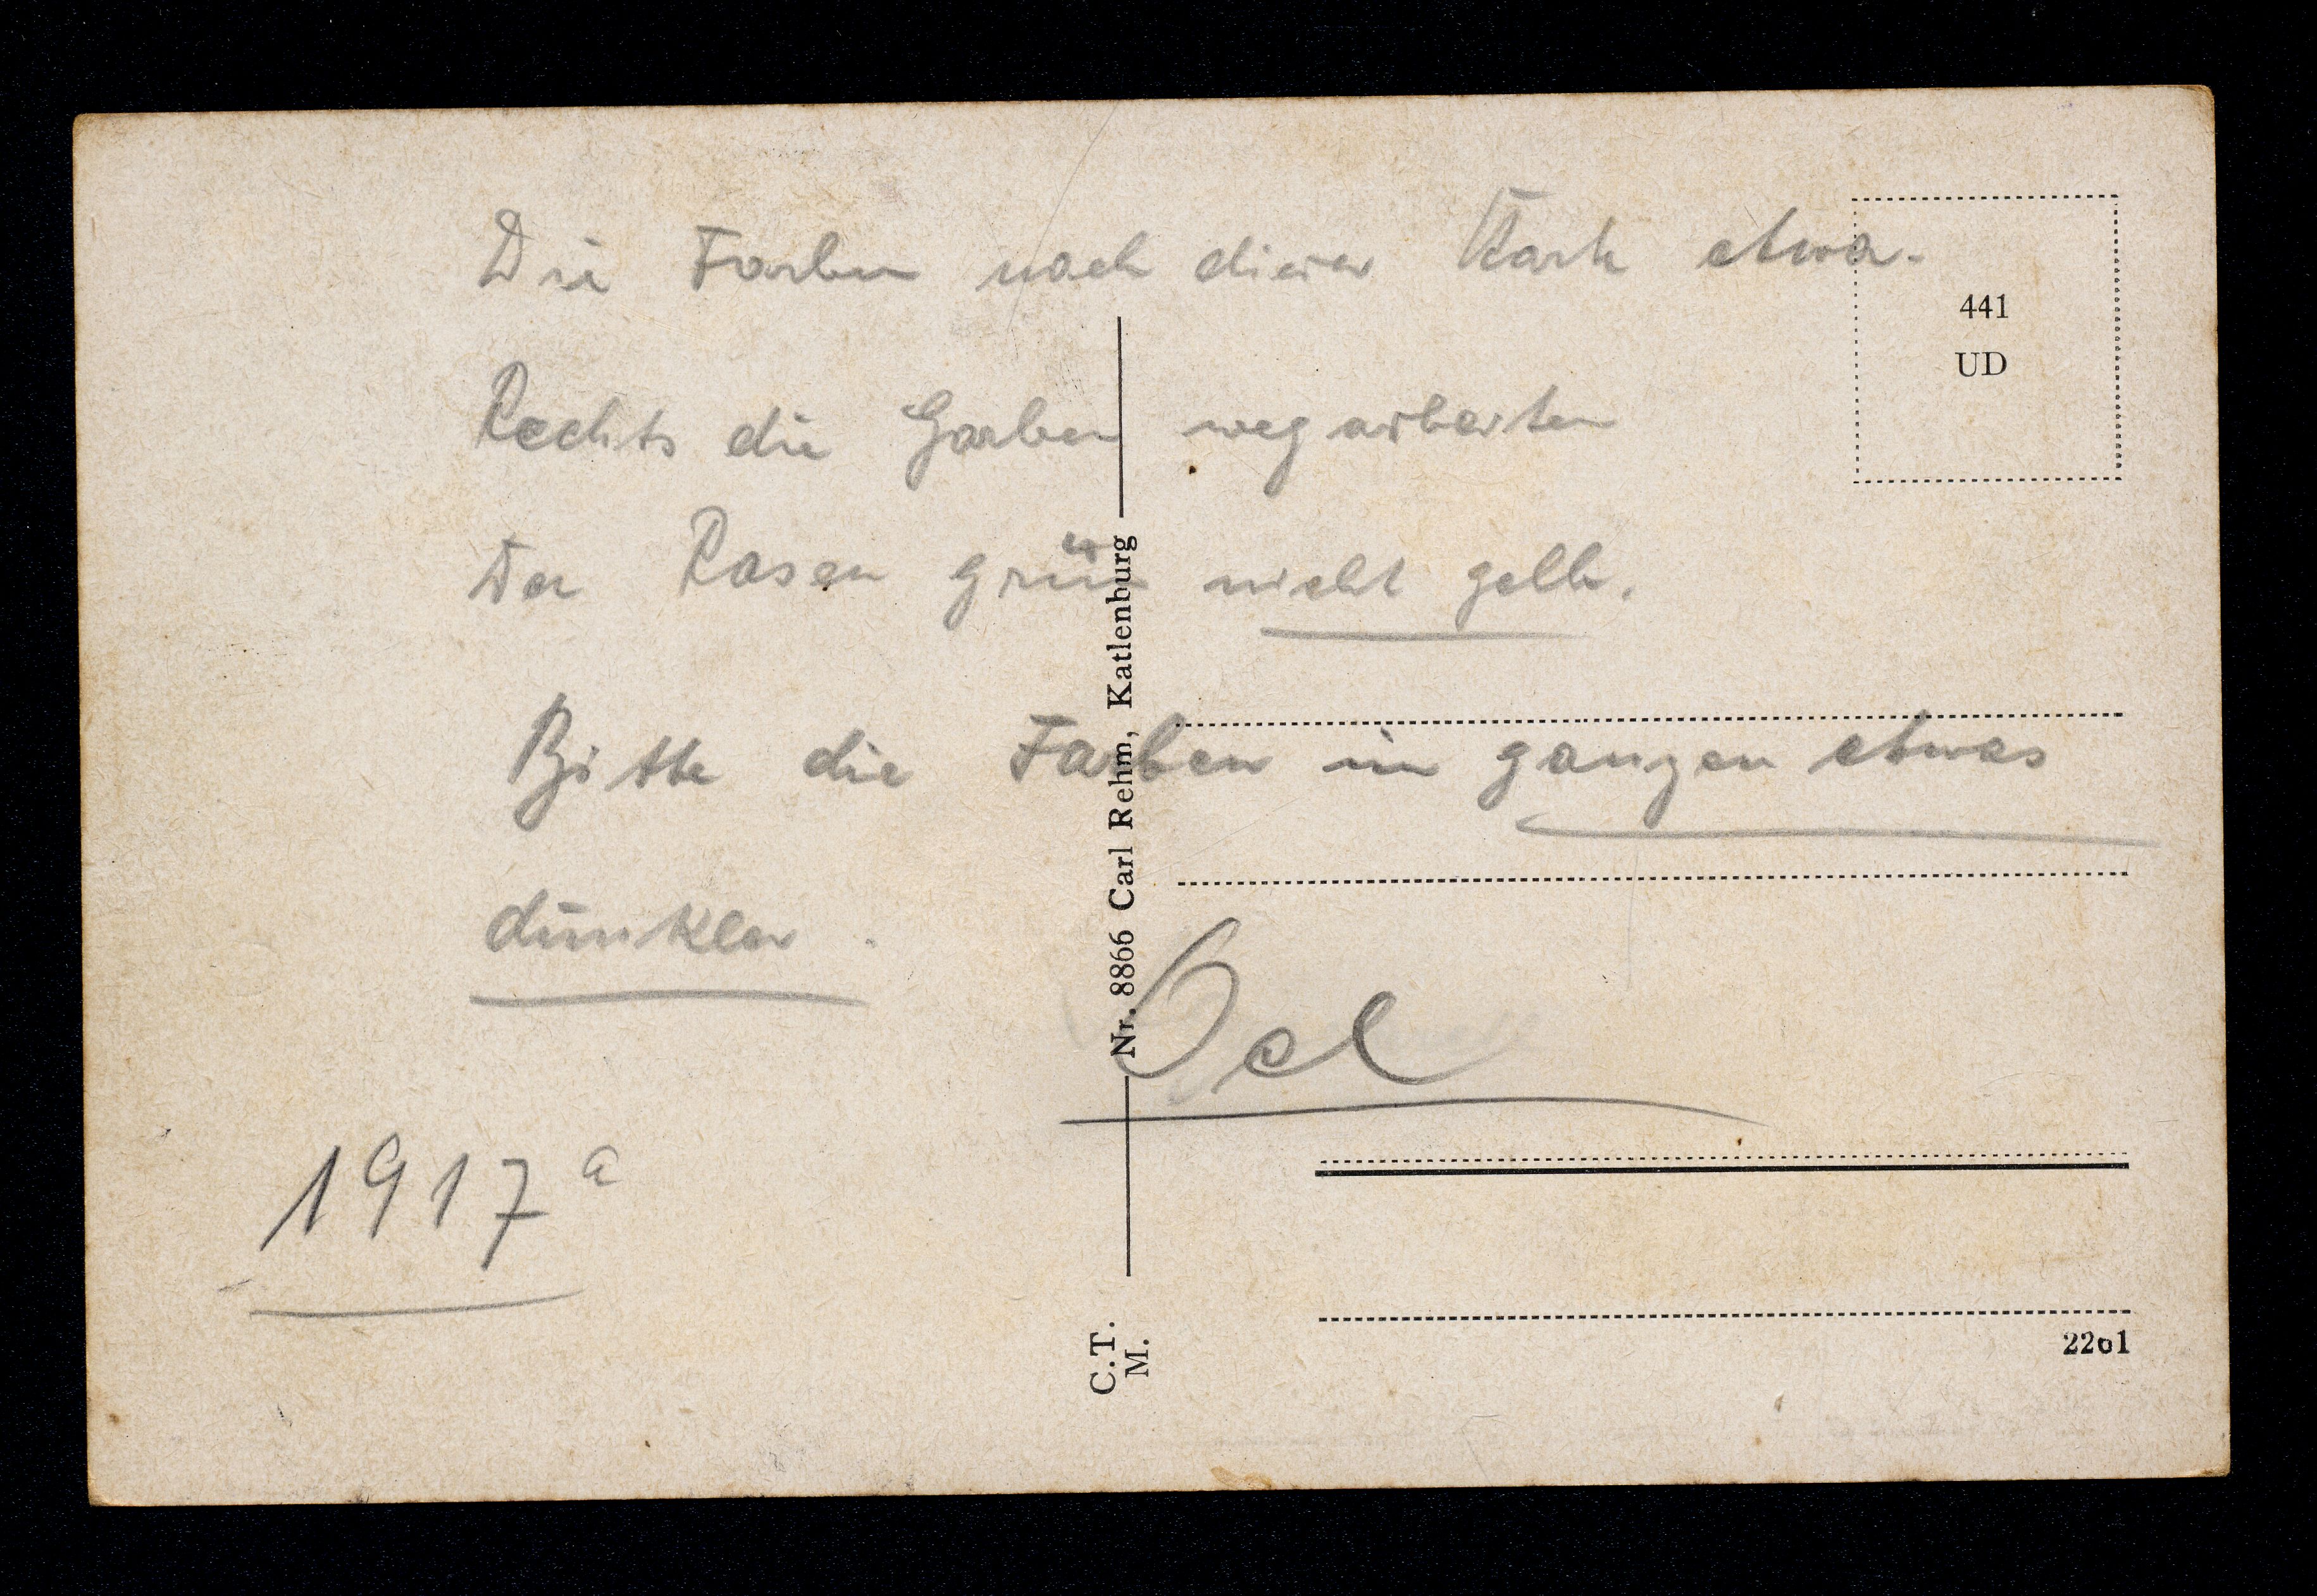 Die Farben nach dieser Karte etwa.
441
UD
Rechts die Garben wegarbeiten
Der Rasen grün nicht gelb.
Bitte die Farben im ganzen etwas
dunkler.
Nr. 8866 Carl Rehm, Katlenburg
Oel
1917a
C.T.
M.
2201